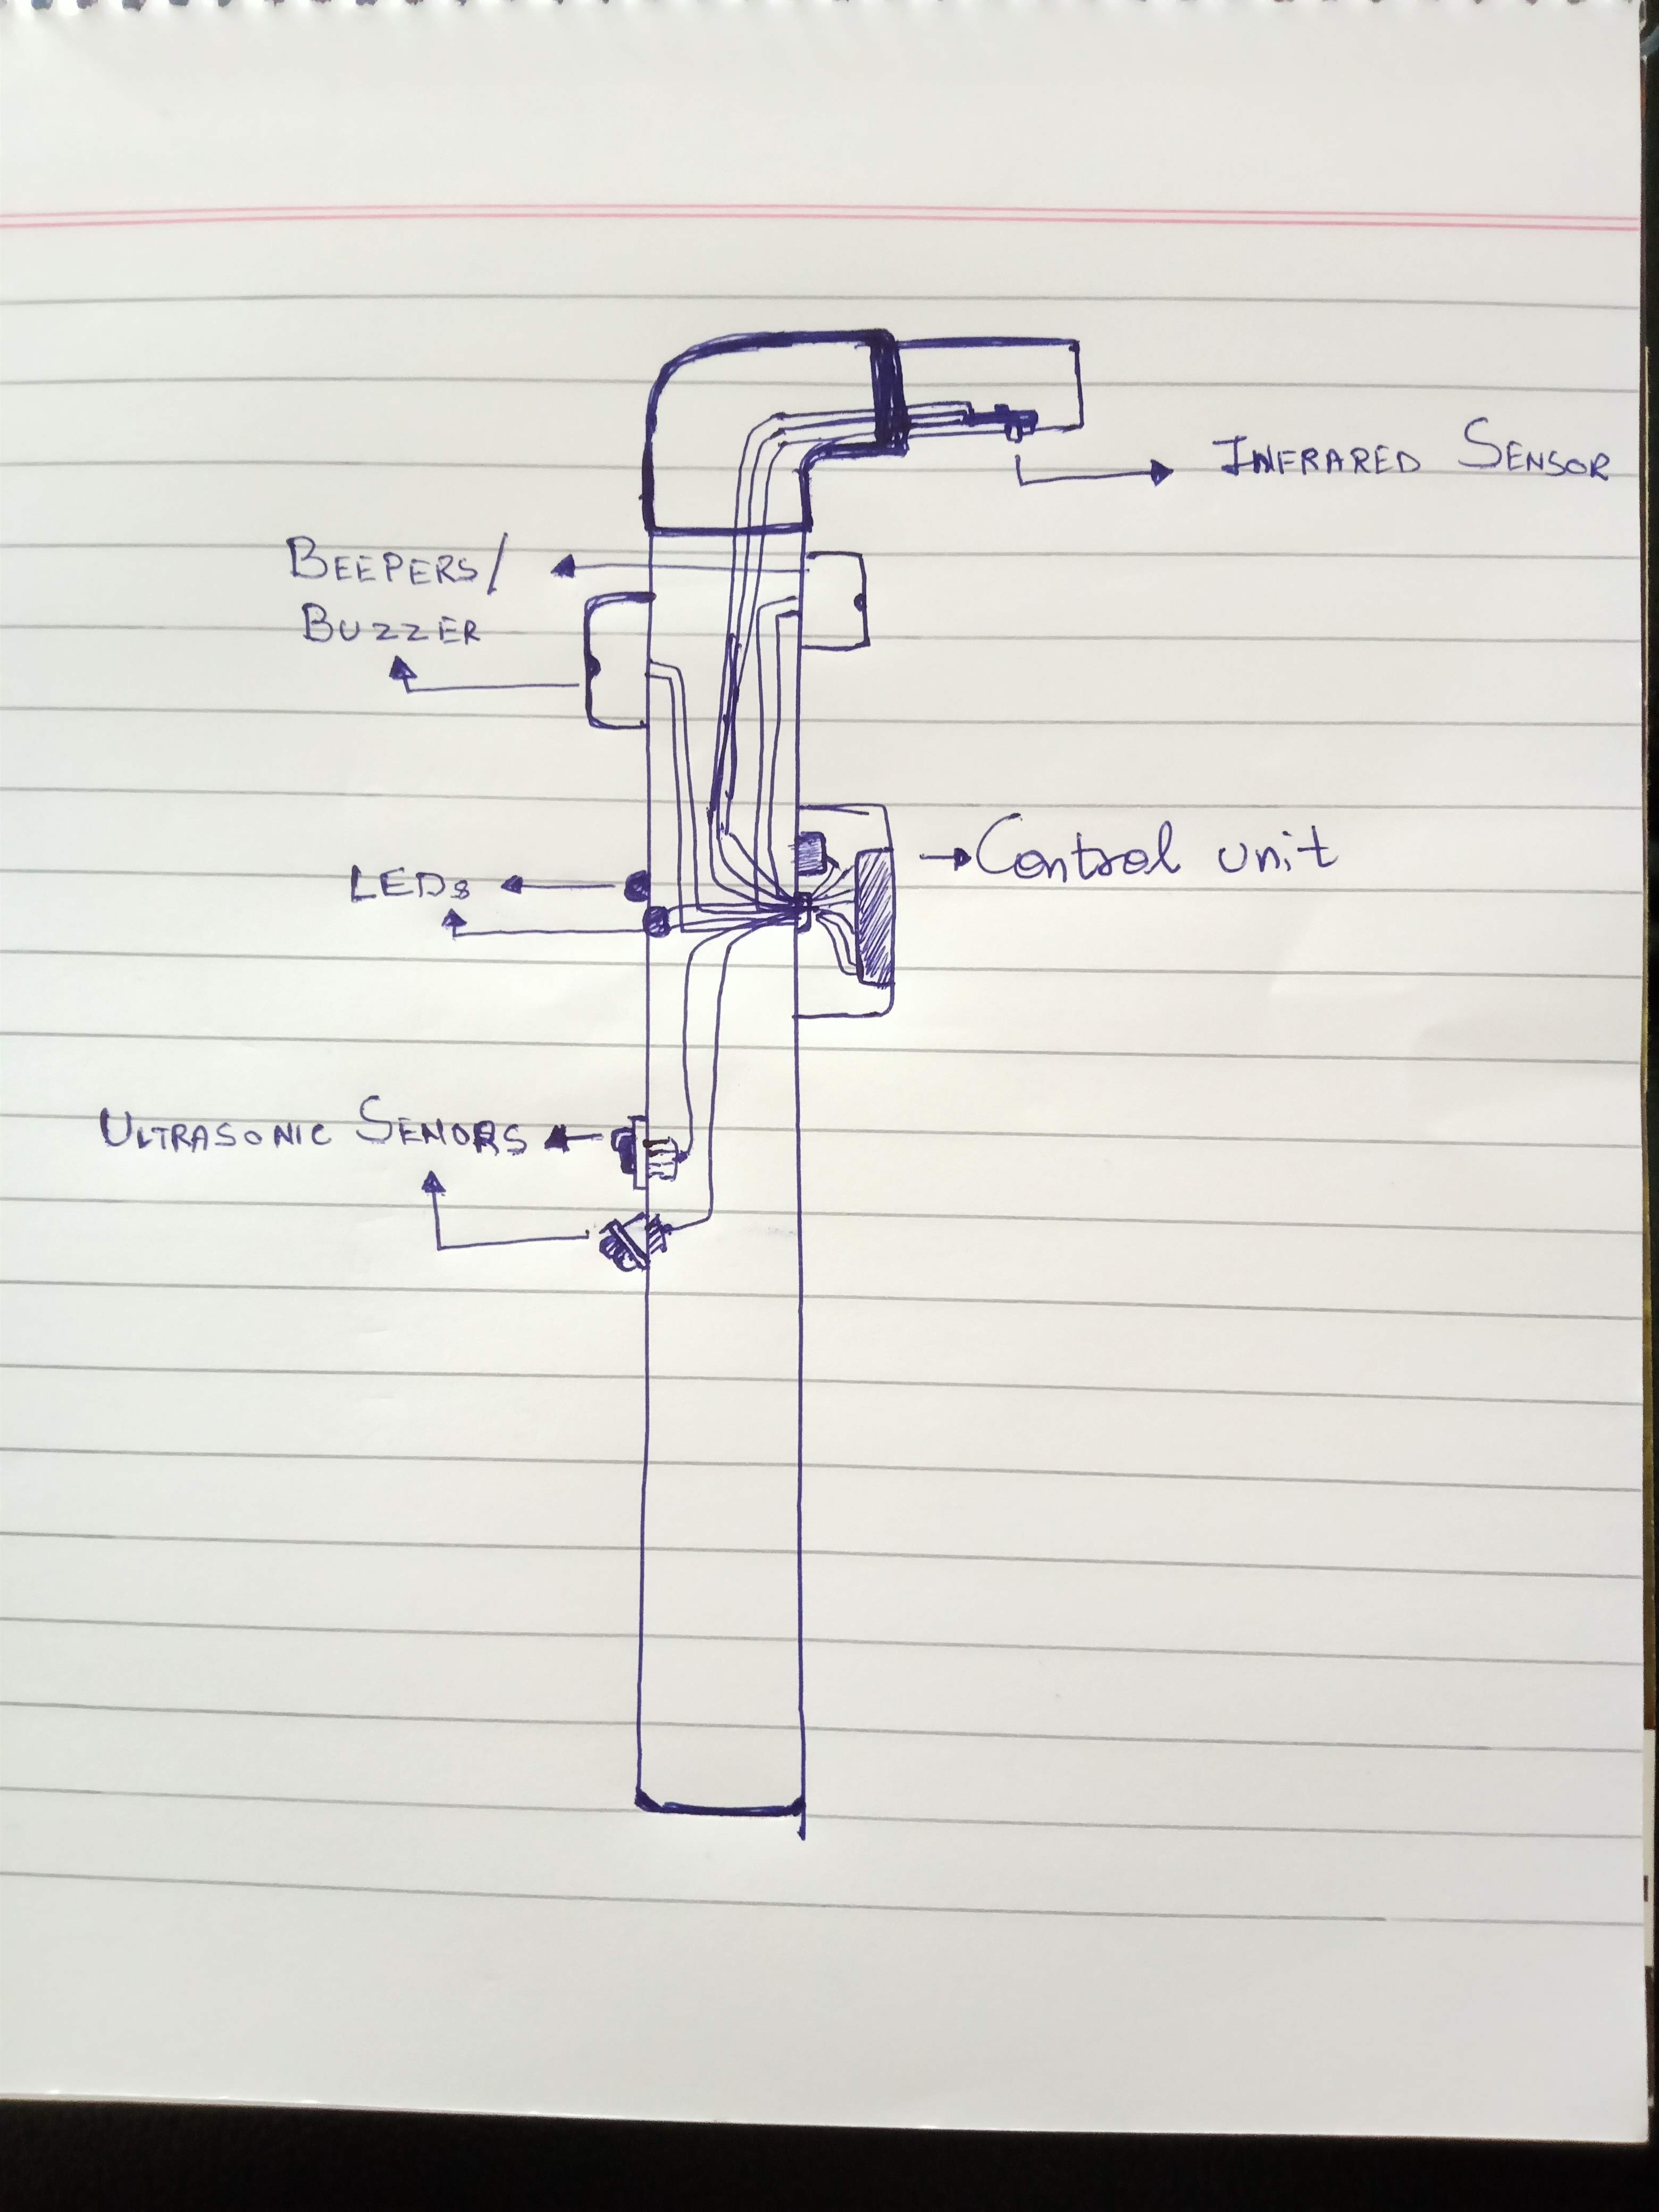 INFRARED SENSOR
BEEPERS/
BUZZER
Control unit
LEDs
ULTRASONIC SENORS